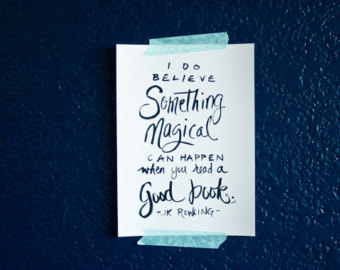 I DO
BELIEVE
Something
Magical
CAN HAPPEN
when you read a
Good book.
-JK ROWLING-